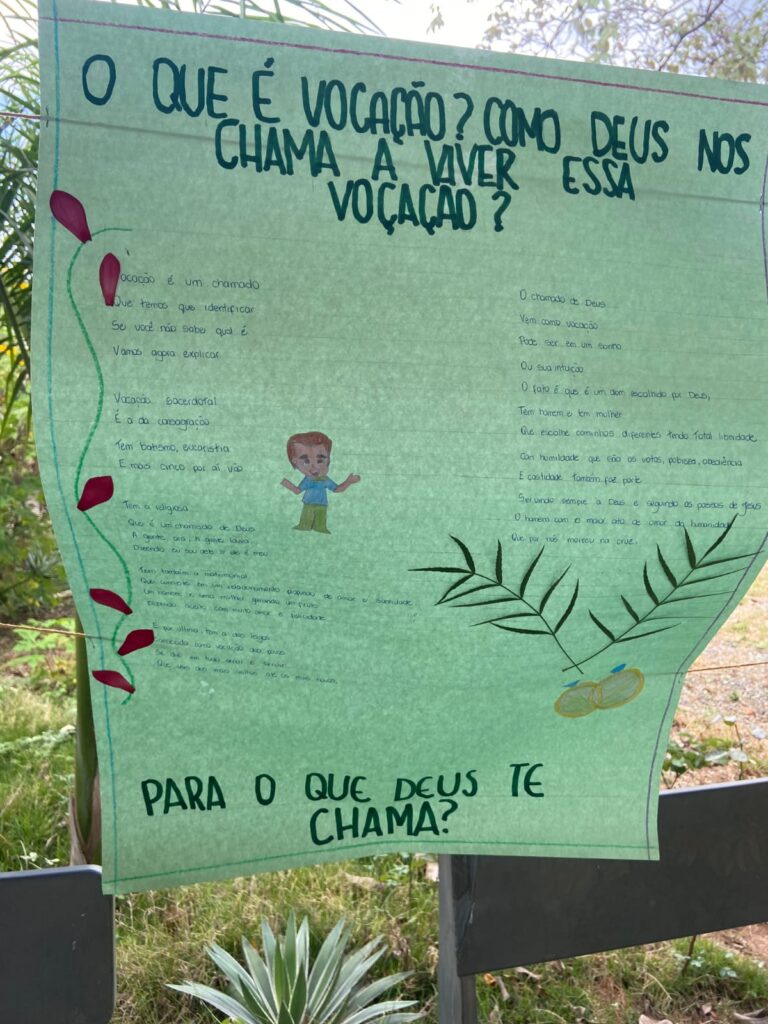 O QUE É VOCAÇÃO? COMO DEUS NOS
CHAMA A VIVER ESSA
VOÇAÇÃO?
Vocação é um chamado
Que temos que identificar
Se você não saber qual é
Vamos agora explicar.
Vocação sacerdotal
É a da consagração
Tem batismo, eucaristia
E mais cinco por aí vão
Tem a religiosa
Que é um chamado de Deus
A gente ora, a gente louva
Dizendo eu sou dele e ele é meu
Tem também a matrimonial
Que consiste em um relacionamento de amor e
Um homem e uma mulher gerando um fruto
com muito amor e felicidade
E por último, tem a dos leigos
Conhecida como vocação dos povos
Se doe em tudo amar e servir
Que, vem dos mais velhos até os mais novos.
O chamado de Deus
Vem como vocação
Pode ser em um sonho
Ou sua intuição
O fato é que é um dom escolhido por Deus,
Tem homem e tem mulher
Que escolhe caminhos diferentes tendo Total liberdade
Com humildade que são os votos, pobreza, obediência
E castidade também faz parte
Servindo sempre a Deus e seguindo os passos de Jesus
O homem com o maior ato de amor da humanidade
Que por nós morreu na cruz.
PARA O QUE DEUS TE
CHAMA?